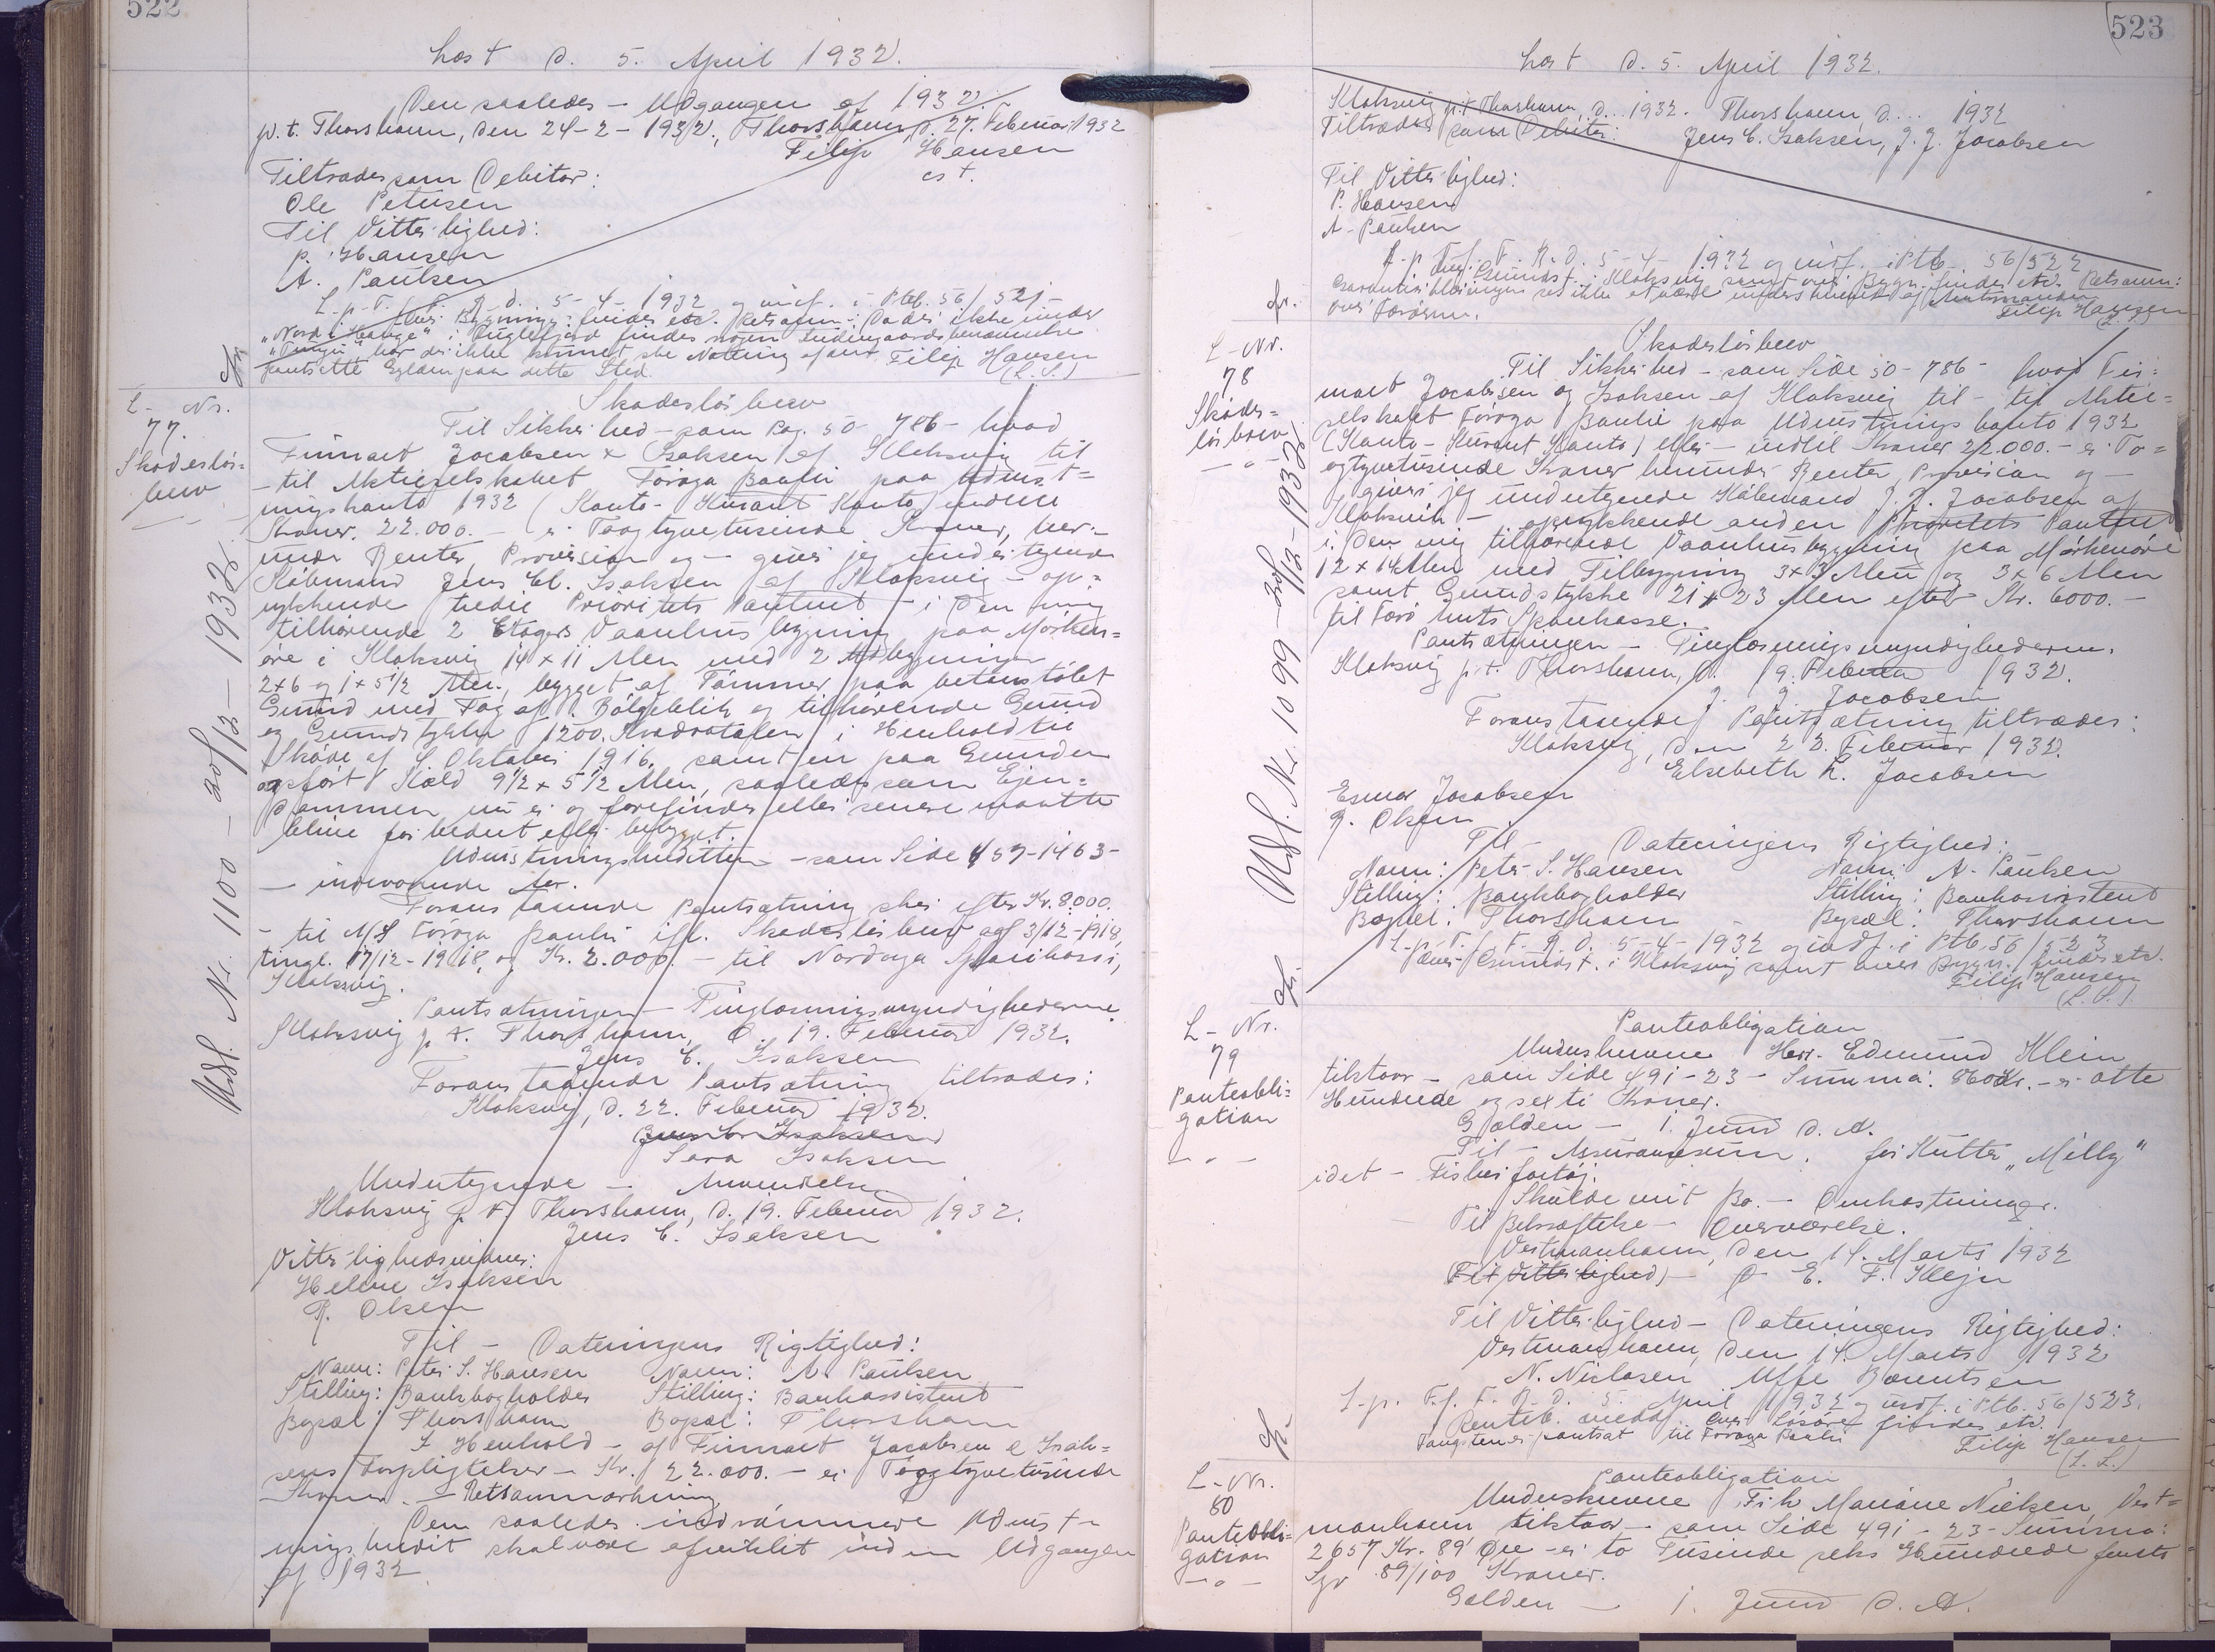 522
Læst d. 5. April 1932.
Den saaledes - Udgangen af 1932.
p. t. Thorshavn, den 24-2-1932., Thorshavn, d. 27. Februar 1932
Filip Hansen
cst.
Tiltrædes som Debitor:
Ole Petersen
Til Vitterlighed:
P. Hansen
A. Paulsen
L. p. T. f. F. R. d. 5-4-1932 og indf. i Ptb. 56/521-
over Bygninger findes etc. Retsanm: Da der ikke under
"Nord i Hauge" i Fuglefjord findes nogen
har der ikke kunnet ske Notering af
pantsætte Ejendom paa dette Sted. Filip Hansen
(L. S.)
L-Nr.
77.
Skadesløs-
brev
Udsl. Nr. 1100 - 20/12-1938
Skadesløsbrev
Til Sikkerhed - som Pag. 50-786- hvad
Firmaet Jacobsen & Isaksen af Klaksvig til
- til Aktieselskabet Föroya Banki paa Udrust-
ningskonto 1932 (Konto-Kurant Konto) indtil
Kroner. 22.000.- er Toogtyvetusende Kroner, her-
under Renter, Provision og - giver jeg undertegnede
Købmand Jens Chl. Isaksen af Klaksvig - op-
rykkende tredie Prioritets Panteret - i den mig
tilhørende 2 Etagers Vaaningsbygning paa Mørken-
øre i Klaksvig 14 x 11 Alen med 2 Udbygninger
2x6 og 1x5 1/2 Alen, bygget af Tømmer paa betonstøbt
Grund med Tag af Bølgeblik og tilhørende Grund
og Grundstykke 1200. Kvadratalen i Henhold til
Skøde af 4. Oktober 1916. samt en paa Grunden
opført Kæld 9 1/2 x 5 1/2 Alen, saaledes som Ejen-
dommen nu er og forefindes eller senere maatte
blive forbedret eller bebygget.
Udrustningskreditten - som Side 457-1463-
- indeværende Aar.
Foranstaaende Pantsætning sker efter Kr. 8.000.
- til A/S Föroya Banki ifl. Skadesløsbrev af 3/12-1918,
tingl. 17/12-1918, og Kr. 2.000.- til Nordoya Sparikassi,
Klaksvig.
Pantsætningen - Tinglæsningsmyndighederne.
Klaksvig p. t. Thorshavn, d. 19. Februar 1932.
Jens C. Isaksen
Foranstaaende Pantsætning tiltrædes:
Klaksvig, d. 22. Februar 1932.
Jens C. Isaksen
Sara Isaksen
Undertegnede - Anvendelse
Klaksvig p. t. Thorshavn, d. 19. Februar 1932.
Jens C. Isaksen
Vitterlighedsvidner:
Helene Isaksen
R. Olsen
Til - Dateringens Rigtighed:
Navn: Peter S. Hansen Navn: A. Paulsen
Stilling: Bankbogholder Stilling: Bankassistent
Bopæl: Thorshavn Bopæl: Thorshavn
I Henhold - af Firmaet Jacobsen & Isak-
sens Forpligtelser - Kr. 22.000.- er Toogtyvetusinde
Kroner. - Retsanmærkning
Den saaledes indrømmede Udrust-
ningskredit skal være afviklet inden Udgangen
af 1932
523
Læst d. 5. April 1932.
Klaksvig p. t. Thorshavn, d... 1932. Thorshavn, d.... 1932
Tiltrædes som Debitor: Jens C. Isaksen, J. J. Jacobsen
Til Vitterlighed:
P. Hansen
A. Paulsen
L. p. T. f. F. R. d. 5-4-1932 og indf. i Ptb. 56/522
over Grundst. i Klaksvig samt over Bygn. findes etc. Retsanm:
Garantierklæringen ses ikke at være underskrevet af Amtmanden
over Færøerne. Filip Hansen
(L. S.)
L-Nr.
78
Skades-
løsbrev
- " -
Udsl. Nr. 1099 - 20/12-1938
Skadesløsbrev
Til Sikkerhed - som Side 50-786- hvad Fir-
maet Jacobsen og Isaksen af Klaksvig til - til Aktie-
selskabet Föroya Banki paa Udrustningskonto 1932
(Konto-Kurant Konto) eller - indtil Kroner 22.000.- er To-
ogtyvetusende Kroner herunder Renter, Provision og -
giver jeg undertegnede Købmand J. J. Jacobsen af
Klaksvik - oprykkende anden Prioritets Panteret
i den mig tilhørende Vaaningsbygning paa Mørkenøre
12 x 14 Alen med Tilbygning 3x3 Alen og 3x6 Alen
samt Grundstykke 21 x 23 Alen efter Kr. 6000.-
til Færø Amts Sparekasse.
Pantsætningen - Tinglæsningsmyndighederne.
Klaksvig p. t. Thorshavn, d. 19. Februar 1932.
J. J. Jacobsen
Foranstaaende Pantsætning tiltrædes:
Klaksvig, den 22. Februar 1932.
Elsebeth K. Jacobsen
Esmar Jacobsen
R. Olsen
Til - Dateringens Rigtighed:
Navn: Peter S. Hansen Navn: A. Paulsen
Stilling: Bankbogholder Stilling: Bankassistent
Bopæl: Thorshavn - Bopæl: Thorshavn
L. p. T. f. F. R. d. 5-4-1932 og indf. i Ptb. 56/523
over Grundst. i Klaksvig samt over Bygn. findes etc.
Filip Hansen
(L. S.)
L-Nr.
79
Panteobli-
gation
- " -
Panteobligation
Underskrevne Herr. Edmund Klein
tilstaar - som Side 491-23- Summa: 860 Kr. - er otte
Hundrede og seksti Kroner.
Gælden - 1. Juni d. A.
Til - Assurancesum. for Kutter "Milly"
idet - Fiskerfartøj.
Skulde mit Bo. - Omkostninger.
Til Bekræftelse - Overværelse.
Vestmanhavn, den 14. Marts 1932
(Til Vitterlighed) - E. F. Klejn
Til Vitterlighed - Dateringens Rigtighed:
Vestmanhavn, den 14. Marts 1932
N. Niclasen Uffe Bærentsen
L. p. T. f. F. R. d. 5. April 1932 og indf. i Ptb. 56/523.
over Løsøre findes etc.
pantsat til Föroya Banki Filip Hansen
(L. S.)
L-Nr.
80
Panteobli-
gation
- " -
Panteobligation
Underskrevne Frk. Mariane Nielsen, Vest-
manhavn tilstaar - som Side 491-23-Summa:
2657 Kr. 89 Øre - er to Tusinde seks Hundrede femti
Syv 89/100 Kroner.
Gælden - 1. Juni d. A.